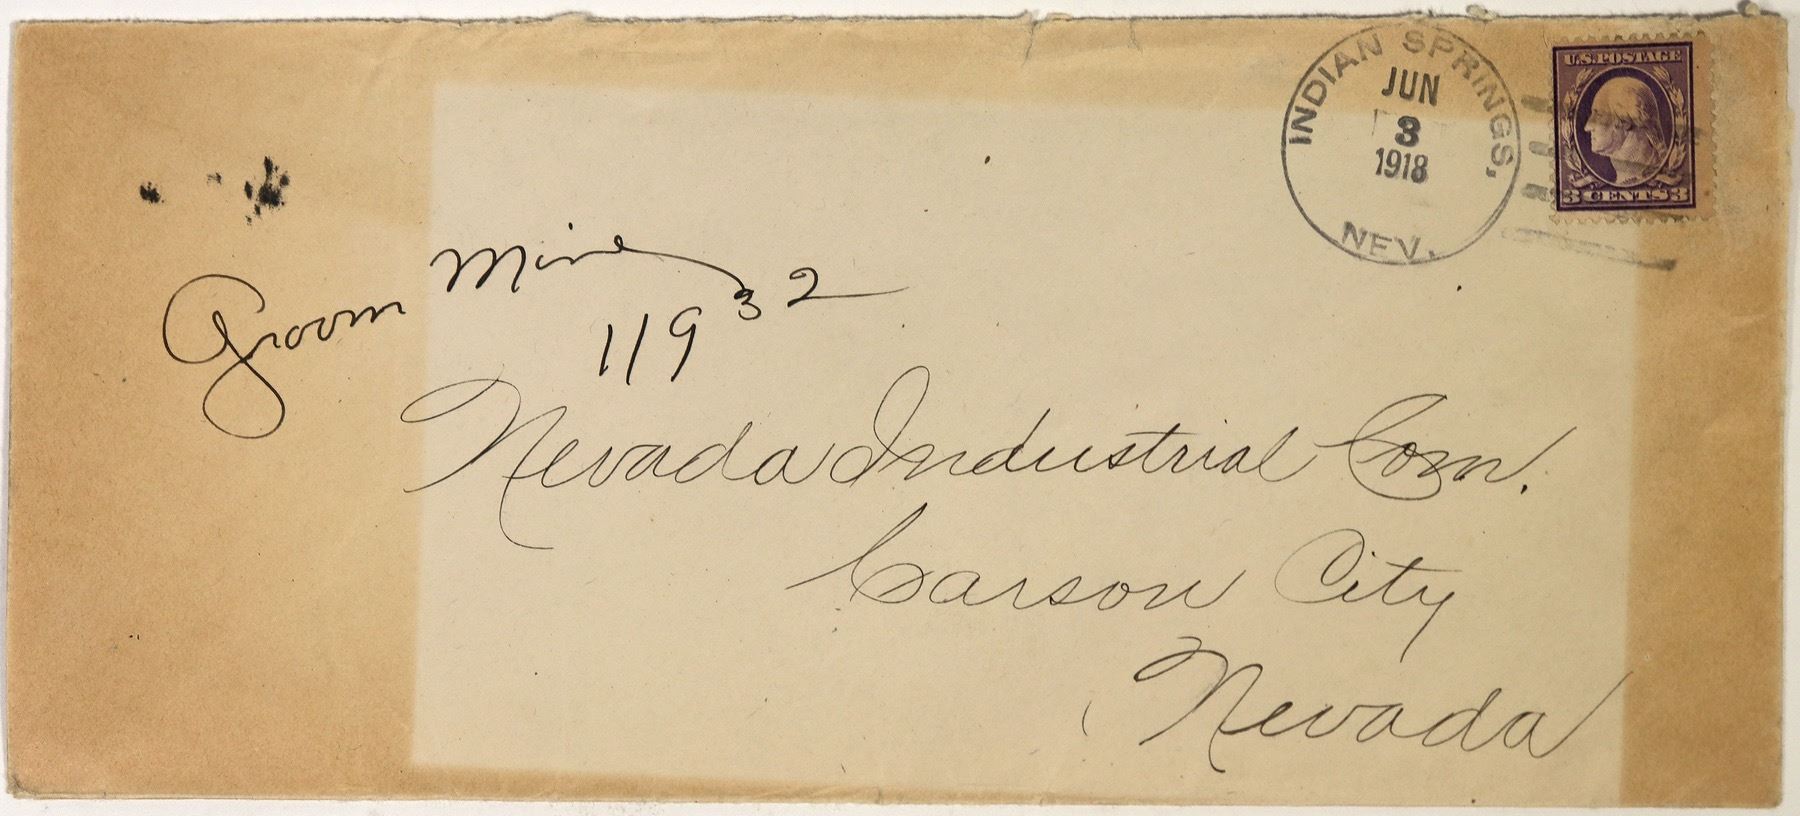 INDIAN SPRINGS,
JUN
3
1918
NEV.
U.S. POSTAGE
3 CENTS 3
Groom Mine
11932
Nevada Industrial Com.
Carson City
Nevada